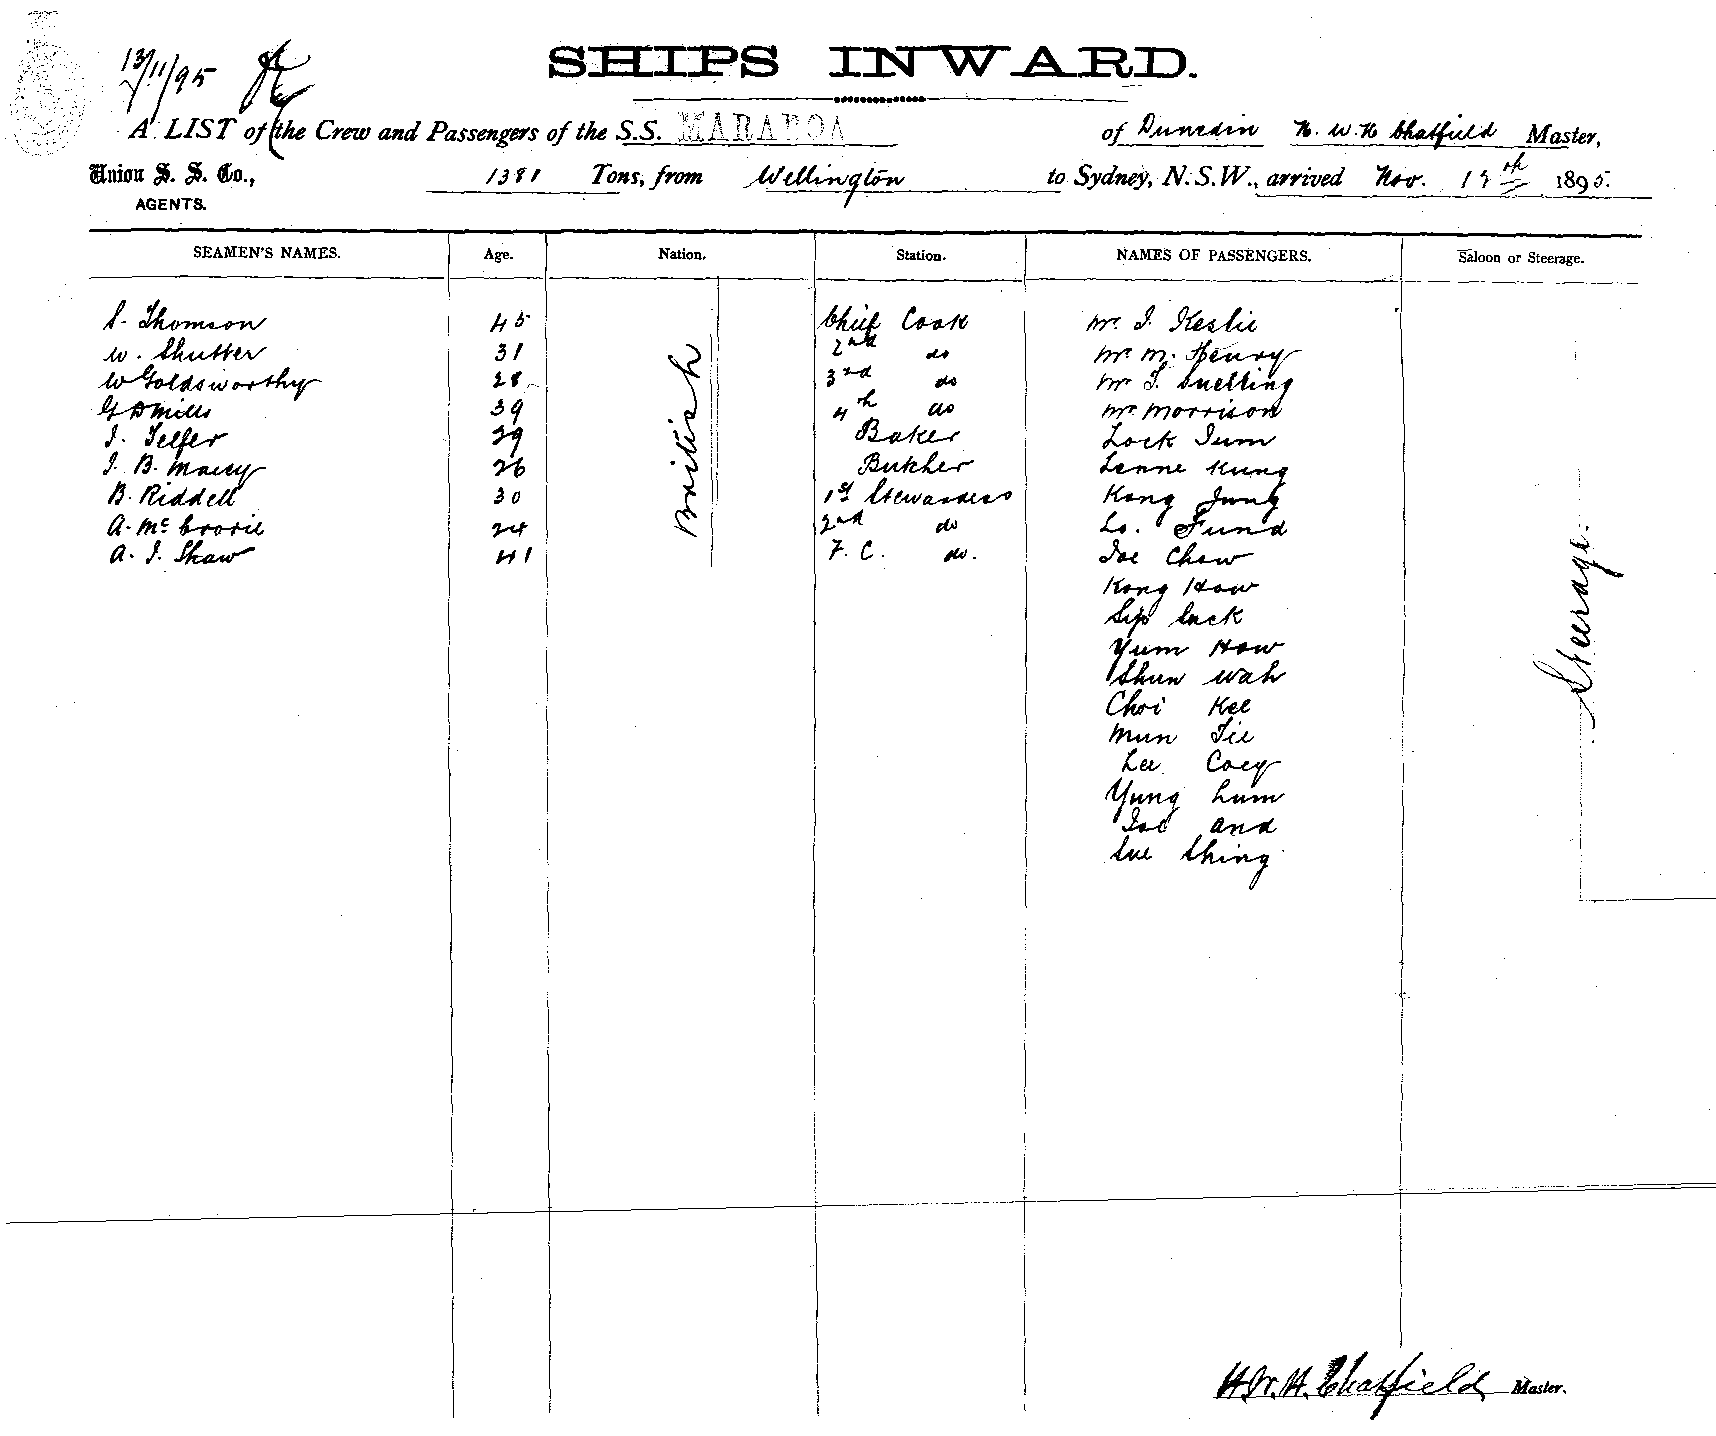 13/11/95
SHIPS INWARD.
A LIST of the Crew and Passengers of the S.S. MARAROA of Dunedin H. W. H Chatfield Master,
Union S. S. Co., 1381 Tons, from Wellington to Sydney, N.S.W., arrived Nov. th 1895.
AGENTS.
SEAMEN'S NAMES. Age. Nation. Station. NAMES OF PASSENGERS. Saloon or Steerage.
S. Thomson 45 Chief Cook Mr. J. Keslie
W. Shutter 31 2nd do Mr. M. Henry
W Goldsworthy 28 3rd do Mr. T. Snelling
G D Mills 39 4th do Mr. Morrison
J. Telfer 29 Baker Lock Jum
J. B. Macey 26 Butcher Lenne Kung
B. Riddell 30 1st Stewardess Kong Jung
A. McCrorie 24 2nd do Lo. Fund
A. J. Shaw 41 F. C. do. Joe Chow
British
Kong How
Sip Luck
Yum How
Shun Wah
Choi Kee
Mun Tie
Lee Coey
Yung Lum
Joe And
Sue Shing
Steerage.
H. W. H. Chatfield Master.